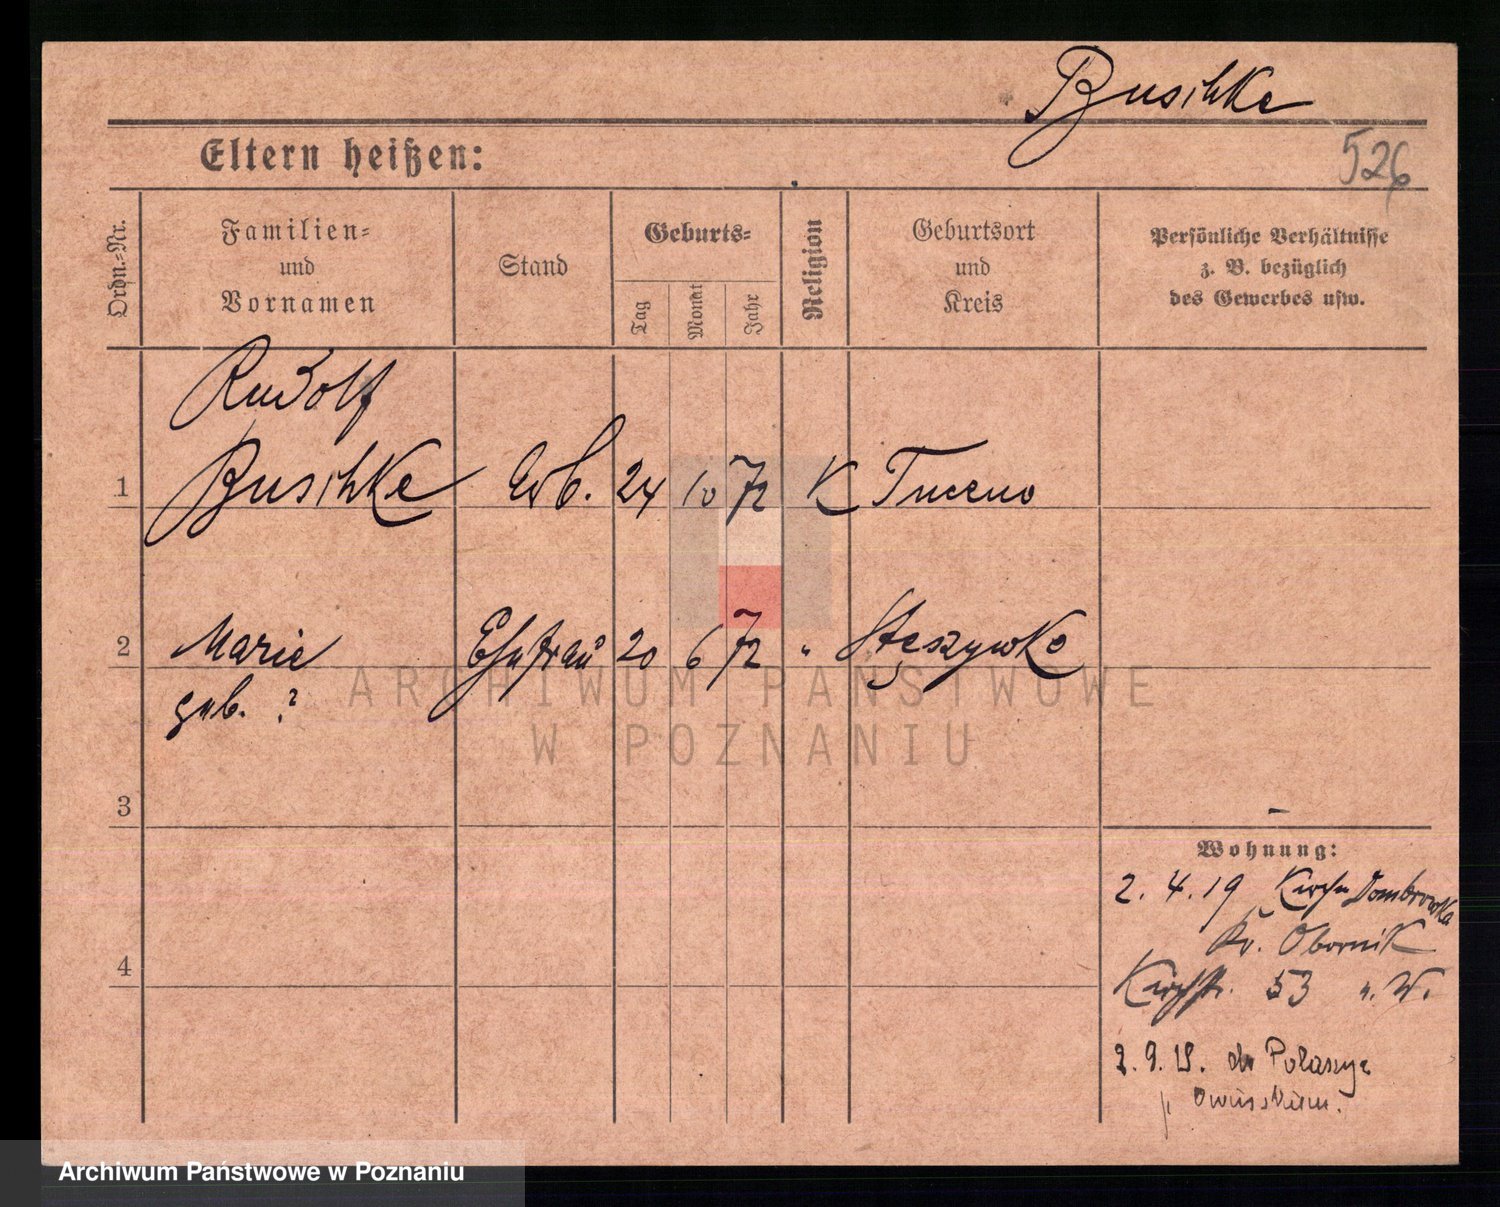 Buschke
Eltern heißen:
526
Ordn.-Nr.
Familien-
und
Vornamen
Stand
Geburts-
Tag
Monat
Jahr
Religion
Geburtsort
und
Kreis
Persönliche Verhältnisse
z. B. bezüglich
des Gewerbes usw.
Rudolf
1 Buschke Arb. 24 10 72 K Tuceno
2 Marie Ehefrau 20 6 72 " Stęszywko
geb. ?
ARCHIWUM PAŃSTWOWE
W POZNANIU
3
Wohnung:
2. 4. 19 Kirchen Dombrowka
Kr. Obornik
4
Kirchstr. 53 u. W.
2. 9. 19. do Polaszye
Archiwum Państwowe w Poznaniu